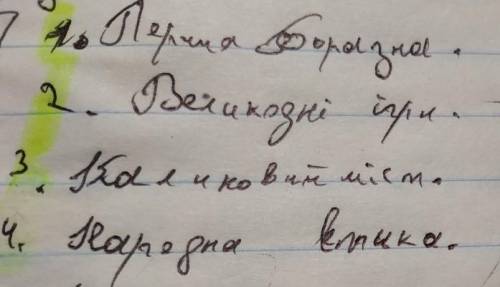 1. Перша борозна.
2. Великодні ігри.
3. Калиновий міст.
4. Народна етика.